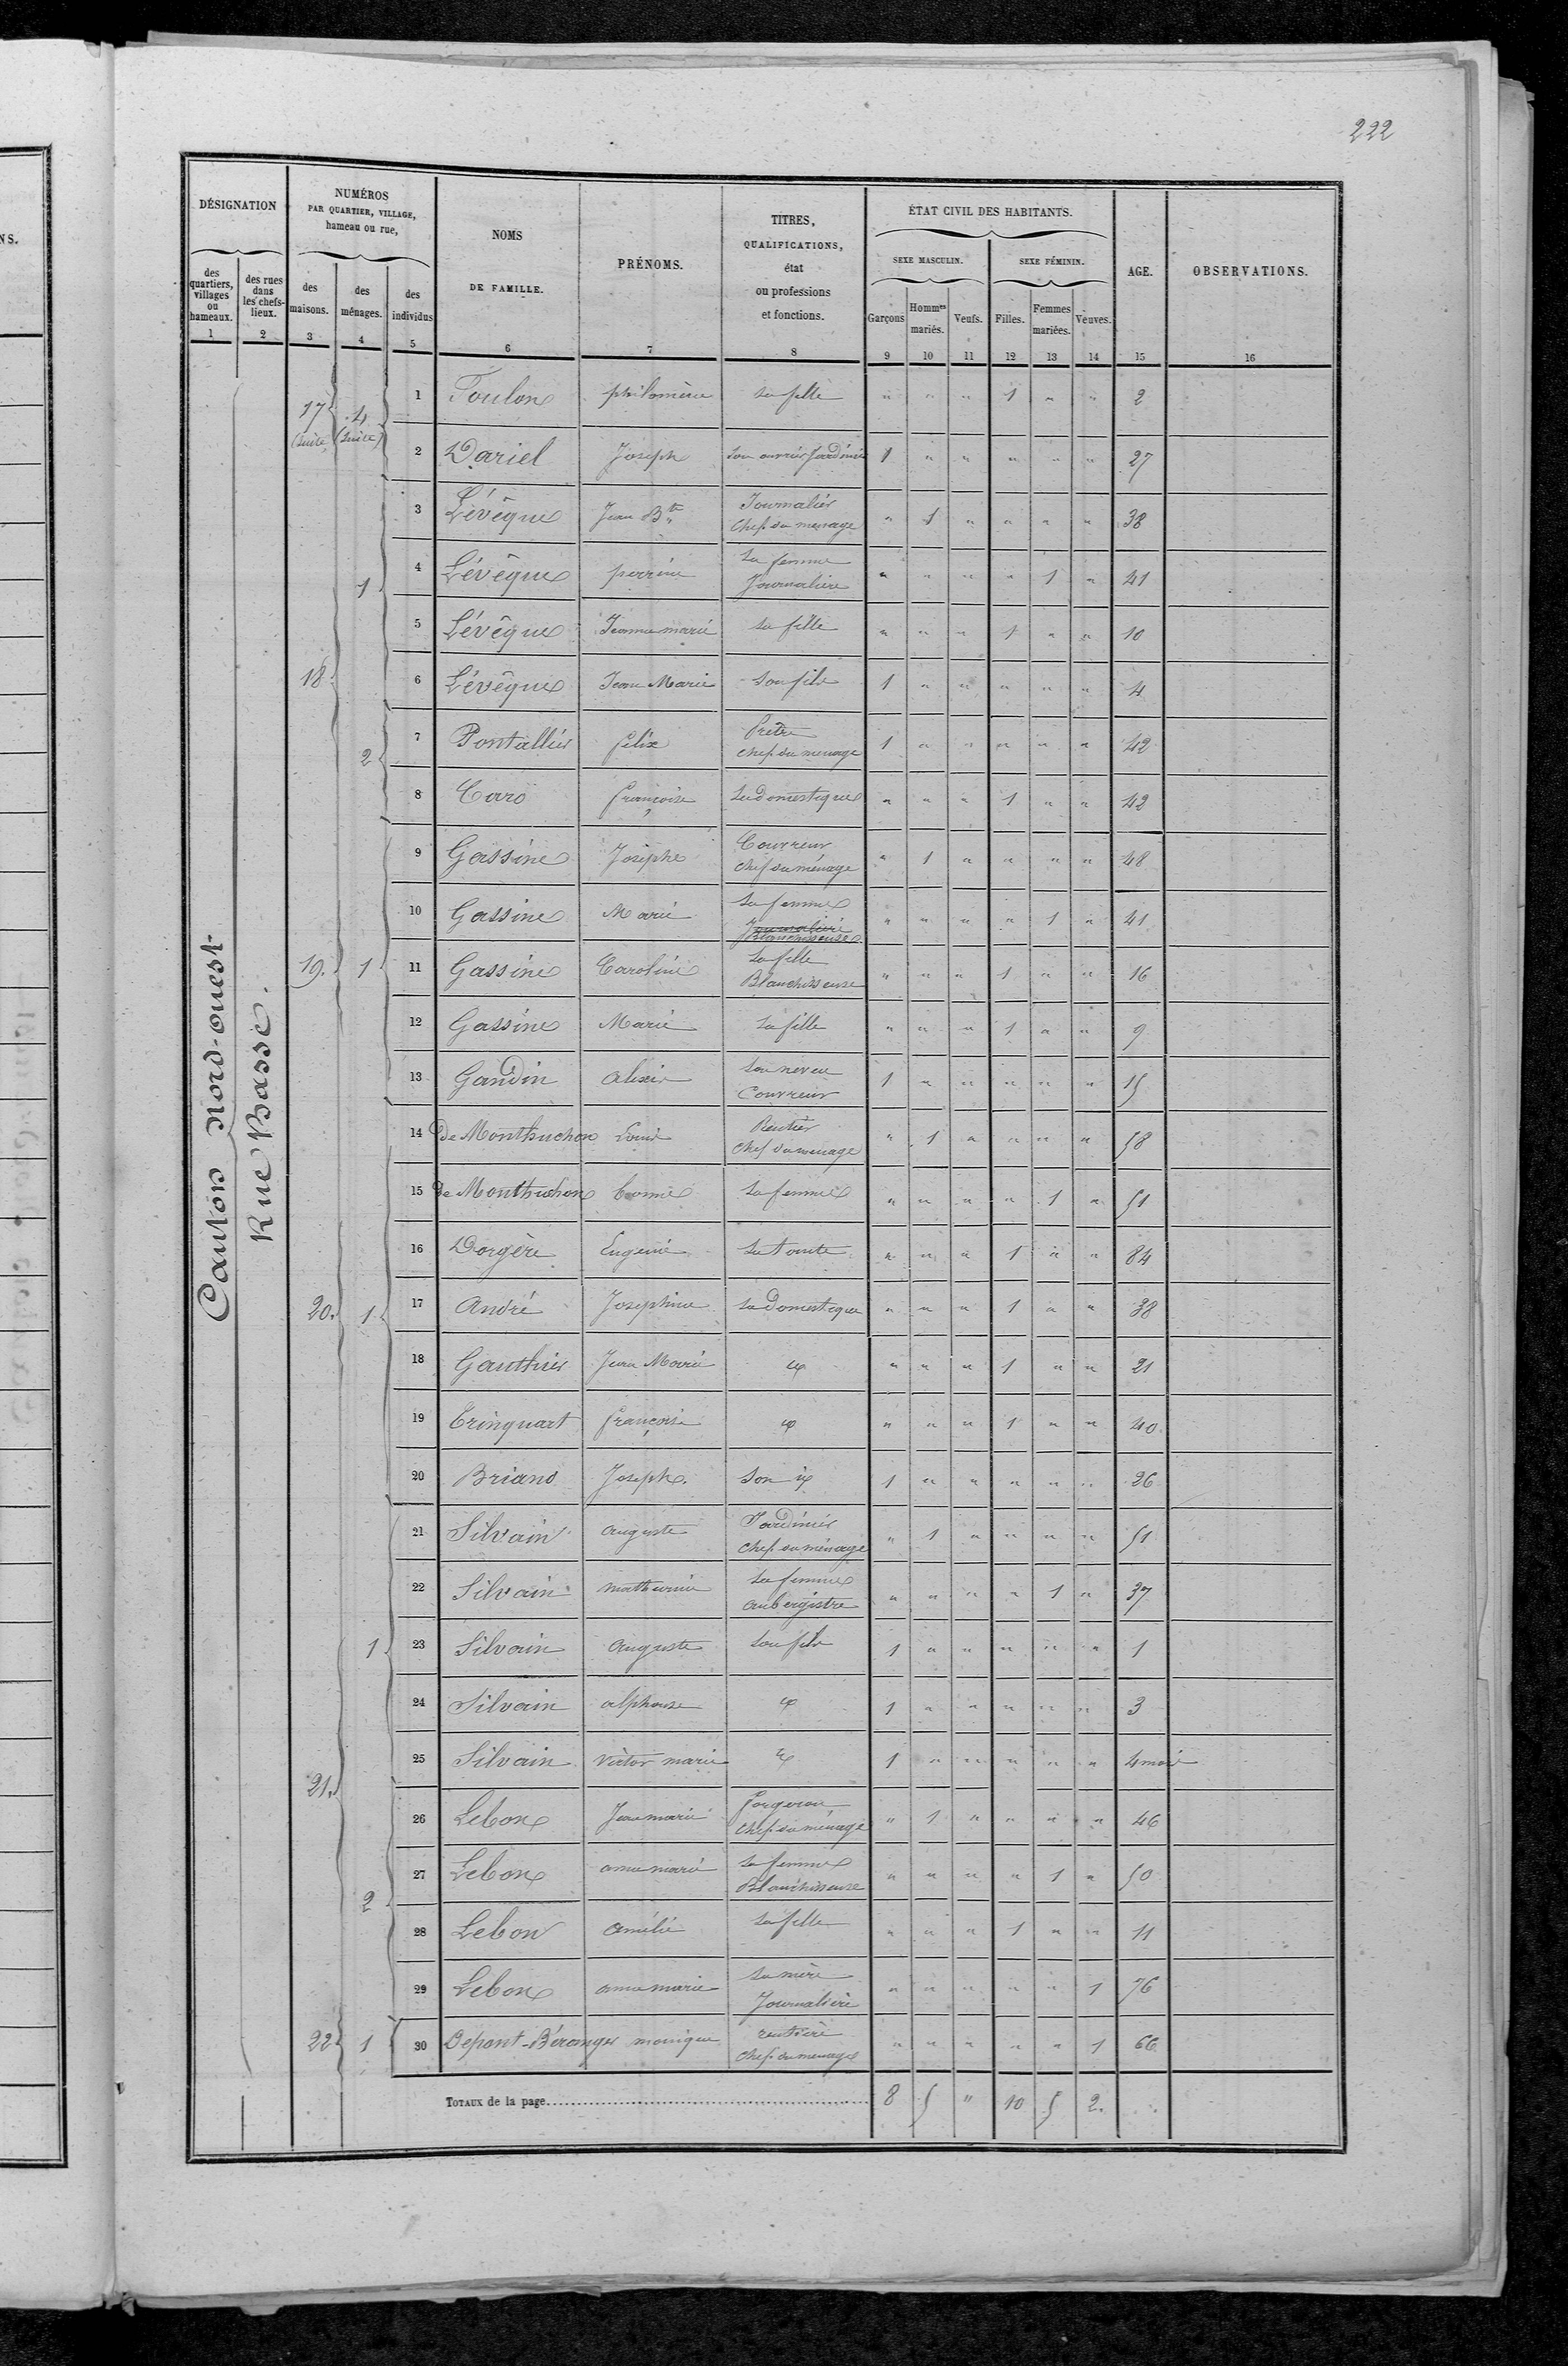 222
DÉSIGNATION
NUMÉROS
PAR QUARTIER, VILLAGE,
hameau ou rue,
NOMS
DE FAMILLE.
PRÉNOMS.
TITRES,
QUALIFICATIONS,
état
ou professions
et fonctions.
ÉTAT CIVIL DES HABITANTS.
SEXE MASCULIN.
SEXE FÉMININ.
AGE.
OBSERVATIONS.
des quartiers, villages ou hameaux.
des rues dans les chefs-lieux.
des maisons.
des ménages.
des individus
Garçons
Hommes mariés.
Veufs.
Filles.
Femmes mariées.
Veuves.
1 2 3 4 5 6 7 8 9 10 11 12 13 14 15 16
Canton Nord-ouest
Rue Basse.
17 (suite) 4 (suite)
1 Toulon philomène sa fille " " " 1 " " 2
2 Dariel Joseph son ouvrier Jardinier 1 " " " " " 27
18 1
3 Lévêque Jean Bte Journalier Chef du menage " 1 " " " " 38
4 Lévêque perrine sa femme Journalière " " " " 1 " 41
5 Lévêque Jeanne marie sa fille " " " 1 " " 10
6 Lévêque Jean Marie son fils 1 " " " " " 4
2
7 Pontallier felix Prêtre chef du menage 1 " " " " " 42
8 Caro françoise sa domestique " " " 1 " " 42
19. 1
9 Gassine Josephe Couvreur chef du ménage " 1 " " " " 48
10 Gassine Marie sa femme Journalière Blanchisseuse " " " " 1 " 41
11 Gassine Caroline sa fille Blanchisseuse " " " 1 " " 16
12 Gassine Marie sa fille " " " 1 " " 9
13 Gandin alexis son neveu Couvreur 1 " " " " " 15
20. 1
14 de Monthuchon Louis Rentier chef du menage " 1 " " " " 58
15 de Monthuchon sa femme " " " " 1 " 51
16 Dorgère Eugenie sa tante " " " 1 " " 84
17 André Josephine sa Domestique " " " 1 " " 38
18 Gauthier Jean Marie " " " 1 " " 21
19 Trinquart françoise " " " 1 " " 40
20 Briand Joseph. son 1 " " " " " 26
21. 1
21 Silvain auguste Jardinier chef du ménage " 1 " " " " 51
22 Silvain mathurine sa femme aubergistre " " " " 1 " 37
23 Silvain auguste son fils 1 " " " " " 1
24 Silvain alphonse 1 " " " " " 3
25 Silvain victor marie 1 " " " " " 4 mois
2
26 Lebon Jean marie forgeron chef du ménage " 1 " " " " 46
27 Lebon anne marie sa femme Blanchisseuse " " " " 1 " 50
28 Lebon amélie sa fille " " " 1 " " 11
29 Lebon anne marie sa mère Journalière " " " " " 1 76
22 1
30 Depont-Béranger monique rentière chef du menage " " " " " 1 66
TOTAUX de la page 8 5 " 10 5 2.